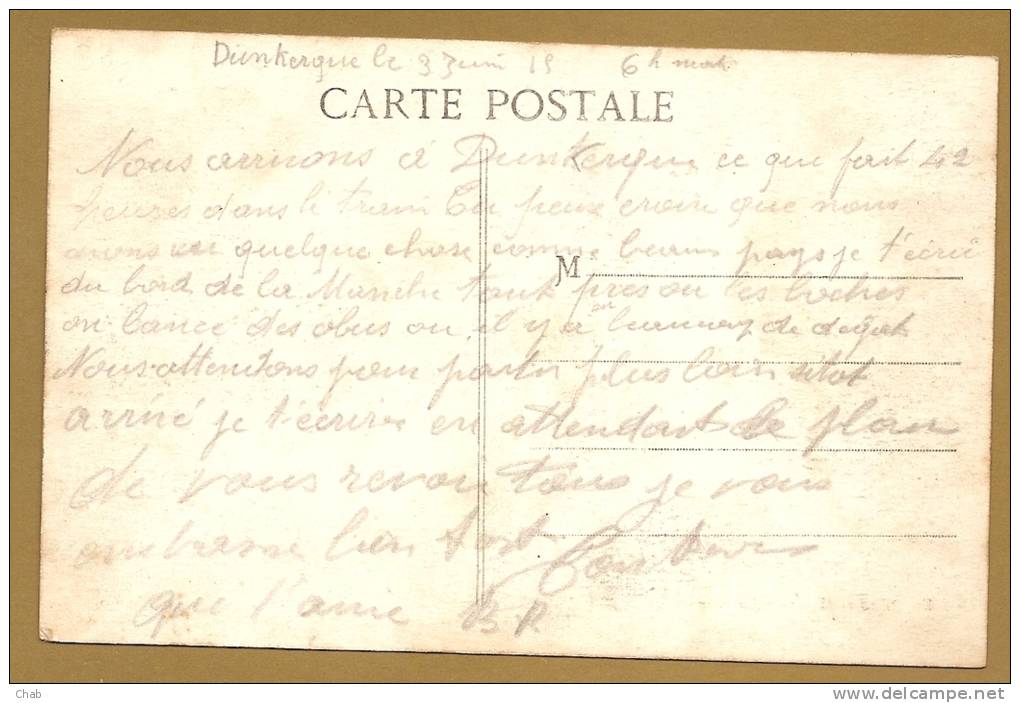 Dunkerque le 3 Juin 15 6 h mat
CARTE POSTALE
Nous arrivons à Dunkerque ce que fait 42
heures dans le train Tu peux croire que nous
avons vu quelque chose comme beaux pays je t'écrie
M
du bord de la Manche tout pres ou les boches
on lancé des obus ou il y a eu de degat
Nous attendons pour partir plus loin sitot
arrivé je t'écrire en attendant le
de vous revoir tous je vous
embrasse bien fort
qui t'aime BR
Chab
http://www.delcampe.net